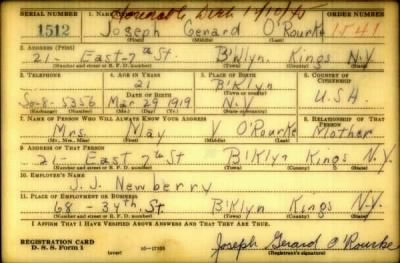 SERIAL NUMBER 1. NAME Honorable Disch 1/10/45 ORDER NUMBER
1512 Joseph Gerard O'Rourke 1541
(First) (Middle) (Last)
2. ADDRESS (Print)
21- East-7th St. B'klyn. Kings N.Y
(Number and street or R. F. D. number) (Town) (County) (State)
3. TELEPHONE 4. AGE IN YEARS 5. PLACE OF BIRTH 6. COUNTRY OF CITIZENSHIP
21 B'klyn
DATE OF BIRTH (Town or county)
So-8-5356 Mar 29 1919 N.Y U.S.A.
(Exchange) (Number) (Mo.) (Day) (Yr.) (State or country)
7. NAME OF PERSON WHO WILL ALWAYS KNOW YOUR ADDRESS 8. RELATIONSHIP OF THAT PERSON
Mrs. May V O'Rourke Mother
(Mr., Mrs., Miss) (First) (Middle) (Last)
9. ADDRESS OF THAT PERSON
21- East 7th St B'Klyn Kings N.Y.
(Number and street or R. F. D. number) (Town) (County) (State)
10. EMPLOYER'S NAME
J.J. Newberry
11. PLACE OF EMPLOYMENT OR BUSINESS
68 - 34th. St B'Klyn Kings N.Y.
(Number and street or R. F. D. number) (Town) (County) (State)
I AFFIRM THAT I HAVE VERIFIED ABOVE ANSWERS AND THAT THEY ARE TRUE.
REGISTRATION CARD
D. S. S. Form 1 (over) Joseph Gerard O'Rourke
(Registrant's signature)